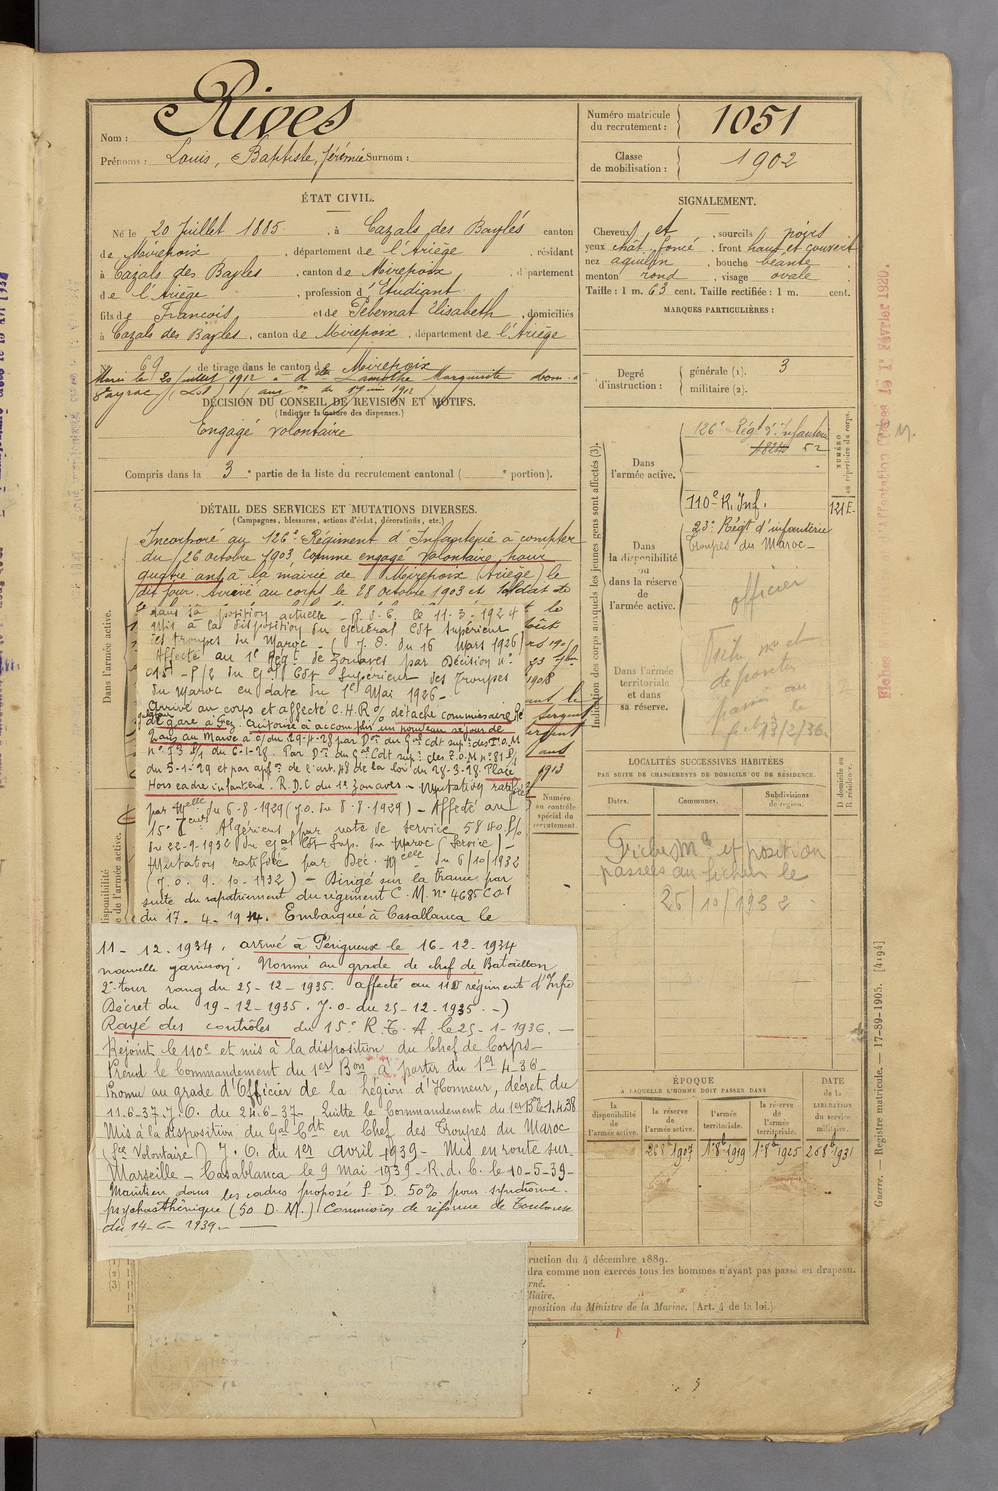 Nom : Rives
Prénoms : Louis, Baptiste, Jérémie Surnom :
Numéro matricule du recrutement : 1051
Classe de mobilisation : 1902
ÉTAT CIVIL.
Né le 20 Juillet 1885, à Cazals des Baylés canton
de Mirepoix, département de l'Ariège, résidant
à Cazals des Bayles, canton de Mirepoix, département
de l'Ariège, profession d'Etudiant
fils de François et de Pebernat Elisabeth, domiciliés
à Cazals des Bayles, canton de Mirepoix, département de l'Ariège
69 de tirage dans le canton de Mirepoix
Marié le 20 juillet 1912 à dlle Lamothe Marguerite dom. à
Payrac (Lot) aut. on du 17 juin 1912
DÉCISION DU CONSEIL DE REVISION ET MOTIFS.
(Indiquer la nature des dispenses.)
Engagé volontaire
Compris dans la 3e partie de la liste du recrutement cantonal ( e portion).
SIGNALEMENT.
Cheveux et, sourcils noirs
yeux chât. foncé, front haut et couvert
nez aquilin, bouche béante
menton rond, visage ovale
Taille : 1 m. 63 cent. Taille rectifiée : 1 m. cent.
MARQUES PARTICULIÈRES :
Degré d'instruction : générale (1). 3
militaire (2).
DÉTAIL DES SERVICES ET MUTATIONS DIVERSES.
(Campagnes, blessures, actions d'éclat, décorations, etc.)
Dans l'armée active.
Incorporé au 126e Régiment d'Infanterie à compter
du 26 octobre 1903 comme engagé volontaire pour
quatre ans à la mairie de Mirepoix (Ariège) le
dit jour. Arrivé au corps le 28 octobre 1903 et soldat de
dans sa position actuelle - R.d.C. le 11-3-1924
mis à la disposition du général Cdt Supérieur
des troupes du Maroc - (J.O. du 16 Mars 1926)
Affecté au 1er Regt de Zouaves par Décision n°
615 - P/2 du Gal Cdt Supérieur des Troupes
du Maroc en date du 1er Mai 1926 -
Arrivé au corps et affecté C.H.R. détaché commissaire
de gare à Fez. Autorisé à accomplir un nouveau séjour de
2 ans au Maroc à c/ du 29-4-28 par Don du Gal Cdt supr des T.O.M
n° 73 P/1 du 6-1-28. Par Don du Gal Cdt supr des T.O.M n° 81 P/1
du 5-1-29 et par appon de l'art. 48 de la loi du 28-3-28 Placé
Hors cadre infanterie. R.D.C du 1er Zouaves - Mutation ratifiée
par Dmelle du 6-8-1929 (J.O. du 8-8-1929) - Affecté au
15e Tirrs Algériens par note de service 5840 P/1
du 22-9-1932 du Gal Cdt Sup. du Maroc (Service) -
Mutation ratifiée par Déc. Melle du 6/10/1932
(J.O. 9-10-1932) - Dirigé sur la France par
suite du rapatriement du régiment C.M. n° 4685 Col
du 17-4-1934. Embarqué à Casablanca le
11-12-1934, arrivé à Périgueux le 16-12-1934
nouvelle garnison. Nommé au grade de chef de Bataillon
2e tour rang du 25-12-1935. affecté au 110 régiment d'Infie
Décret du 19-12-1935. J.O. du 25-12-1935. -)
Rayé des contrôles du 15e R.T.A. le 25-1-1936. -
Rejoint le 110e et mis à la disposition du Chef de Corps -
Prend le Commandement du 1er Bon à partir du 1er 4-36 -
Promu au grade d'Officier de la Légion d'Honneur, décret du
11.6.37. J.O. du 24.6-37. Quitte le Commandement du 1er Bon le 1.4.38
Mis à la disposition du Gal Cdt en Chef des Troupes du Maroc
(Sce Volontaire) J.O. du 1er Avril 1939 - Mis en route sur
Marseille - Casablanca le 9 mai 1939 - R.d.C. le 10-5-39 -
Maintien dans les cadres proposé P.D. 50% pour syndrome
psychasthénique (50 D.M.) Commission de réforme de Toulouse
du 14-6-1939 -
Indication des corps auxquels les jeunes gens sont affectés (3).
Dans l'armée active.
126e Régt d'Infanterie
52
NUMÉRO au répertoire du corps.
110e R. Inf. 121E
Dans la disponibilité ou dans la réserve de l'armée active.
23e Régt d'infanterie
Troupes du Maroc -
officier
Dans l'armée territoriale et dans sa réserve.
Fiche Me et
position
passées au
le 13/2/36
LOCALITÉS SUCCESSIVES HABITÉES
PAR SUITE DE CHANGEMENTS DE DOMICILE OU DE RÉSIDENCE.
Numéro au contrôle spécial du recrutement.
Dates. Communes. Subdivisions de région. D domicile ou R résidence.
Fiches Me et position
passées au fichier le
25/10/1932
ÉPOQUE
À LAQUELLE L'HOMME DOIT PASSER DANS
DATE de la LIBÉRATION du service militaire.
la disponibilité de l'armée active.
la réserve de l'armée active.
l'armée territoriale.
la réserve de l'armée territoriale.
26 8b 1907 1er 8b 1919 1er 8b 1925 26 8b 1931
ruction du 4 décembre 1889.
dra comme non exercés tous les hommes n'ayant pas passé au drapeau.
rné.
liaire.
sposition du Ministre de la Marine. (Art. 4 de la loi.)
Guerre. — Registre matricule. — 17-89-1905. [4194]